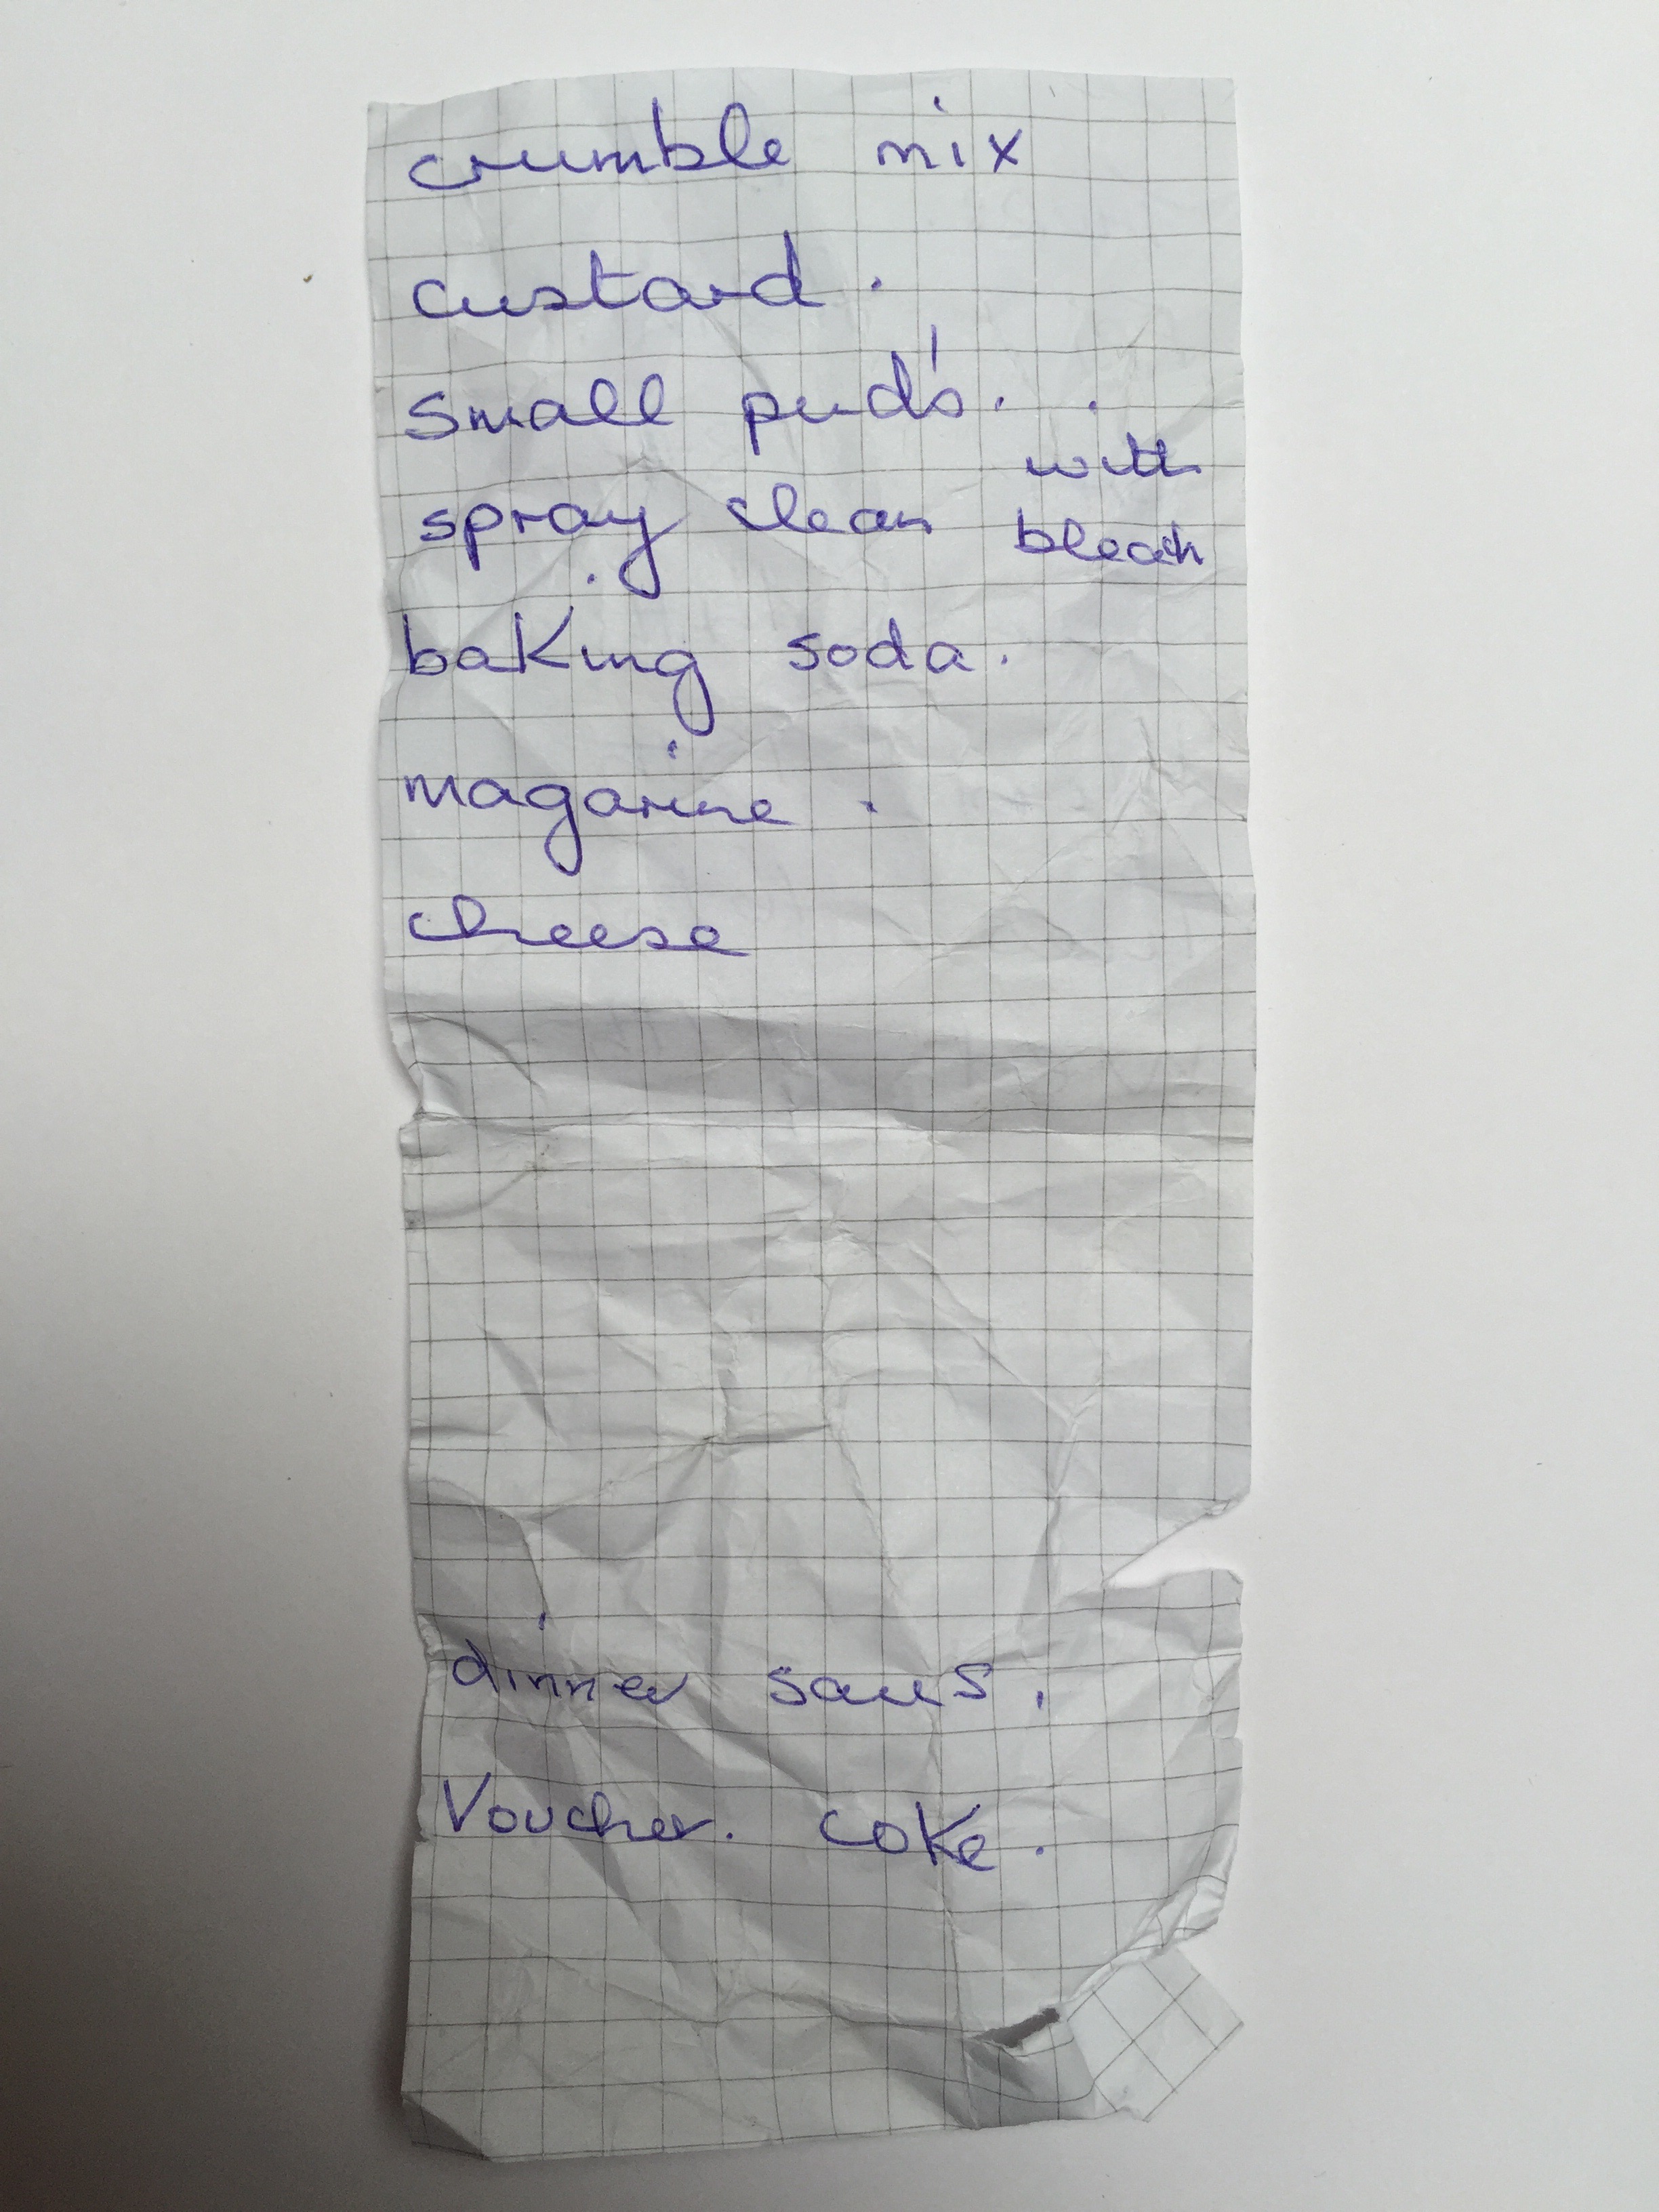 crumble mix
custard.
small pud's.
spray clean with bleach
baking soda.
magarine.
cheese
dinner saus.
Voucher. coke.